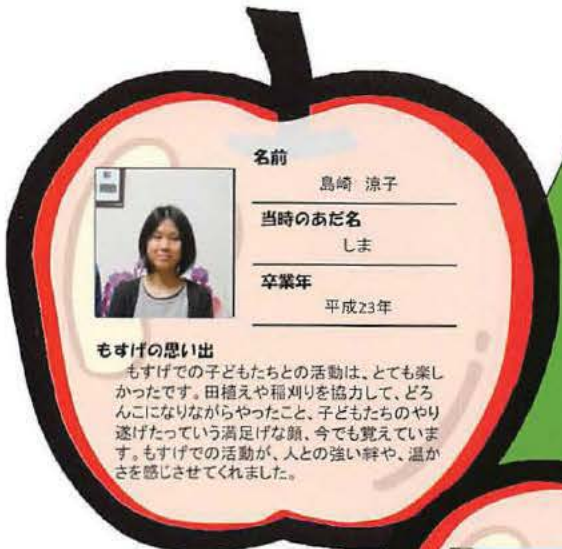 名前
島崎 涼子
当時のあだ名
しま
卒業年
平成23年
もすげの思い出
もすげでの子どもたちとの活動は、とても楽し
かったです。田植えや稲刈りを協力して、どろ
んこになりながらやったこと、子どもたちのやり
遂げたっていう満足げな顔、今でも覚えていま
す。もすげでの活動が、人との強い絆や、温か
さを感じさせてくれました。